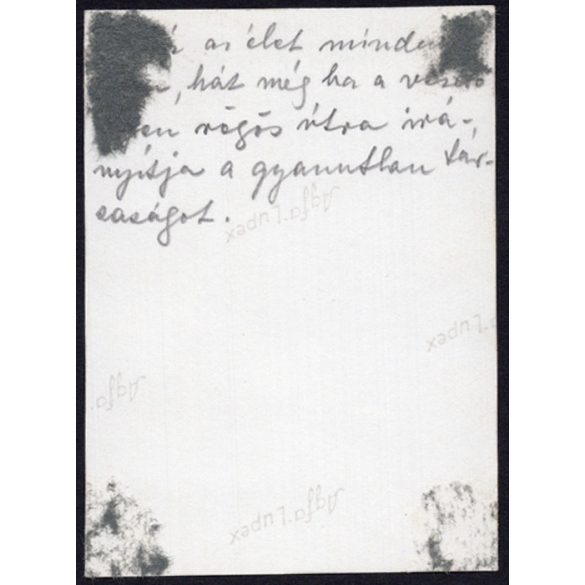 az élet minden
, hát még ha a vezető
rögös útra irá-
nyítja a gyanutlan tár-
saságot.
Agfa Lupex
Agfa Lupex
Agfa
Agfa Lupex